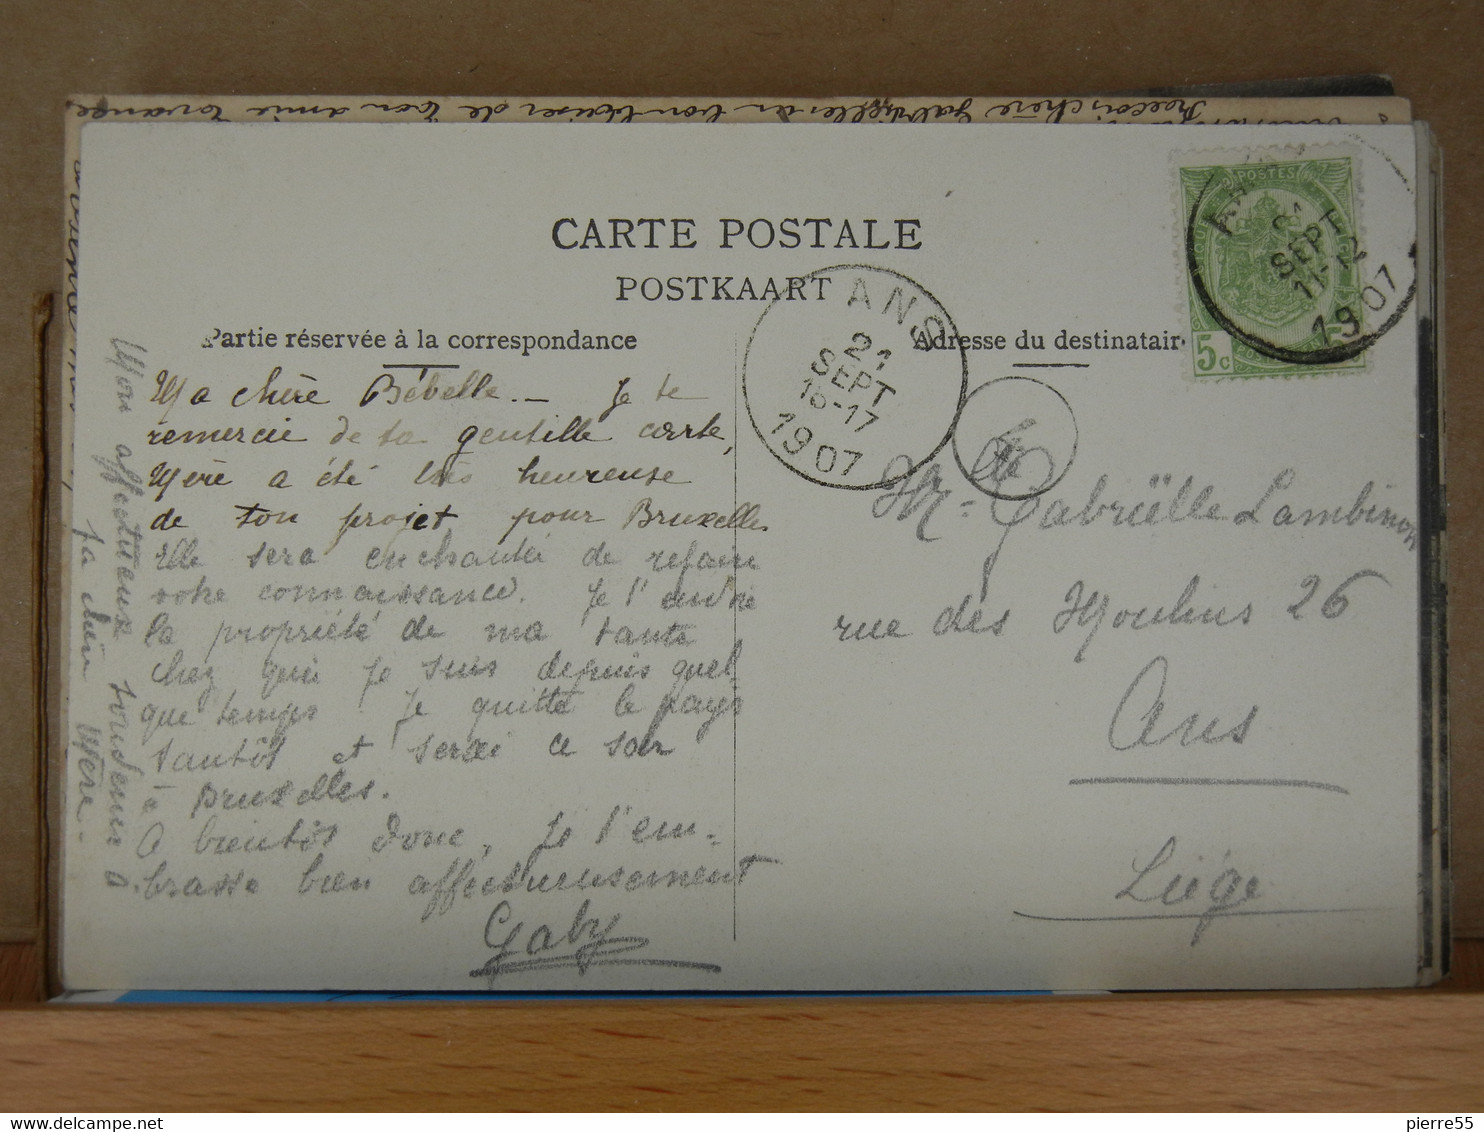 Reçois chère Gabrielle un bon baiser de ton amie
CARTE POSTALE
POSTKAART
Partie réservée à la correspondance
Adresse du destinatair
POSTES
5 c 5
SEPT
11-12
1907
ANS
21
SEPT
16-17
1907
Ma chère Bébelle. — Je te
remercie de ta gentille carte,
Mère a été très heureuse
de ton projet pour Bruxelles
Elle sera enchantée de refaire
votre connaissance. Je
la propriété de ma tante
chez qui je suis depuis quel
que temps. Je quitte le pays
tantôt et serai ce soir
à Bruxelles.
A bientôt donc, Je t'em-
brasse bien affectueusement
Gaby
Mon affectueux souvenir à
ta chère Mère.
Melle Gabriëlle Lambinon
rue des Moulins 26
Ans
Liége
delcampe.net
pierre55